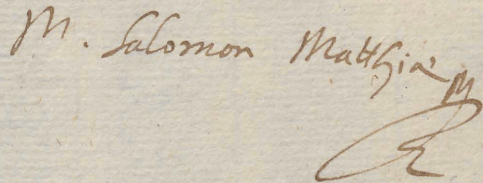 M. Salomon Matthiæ